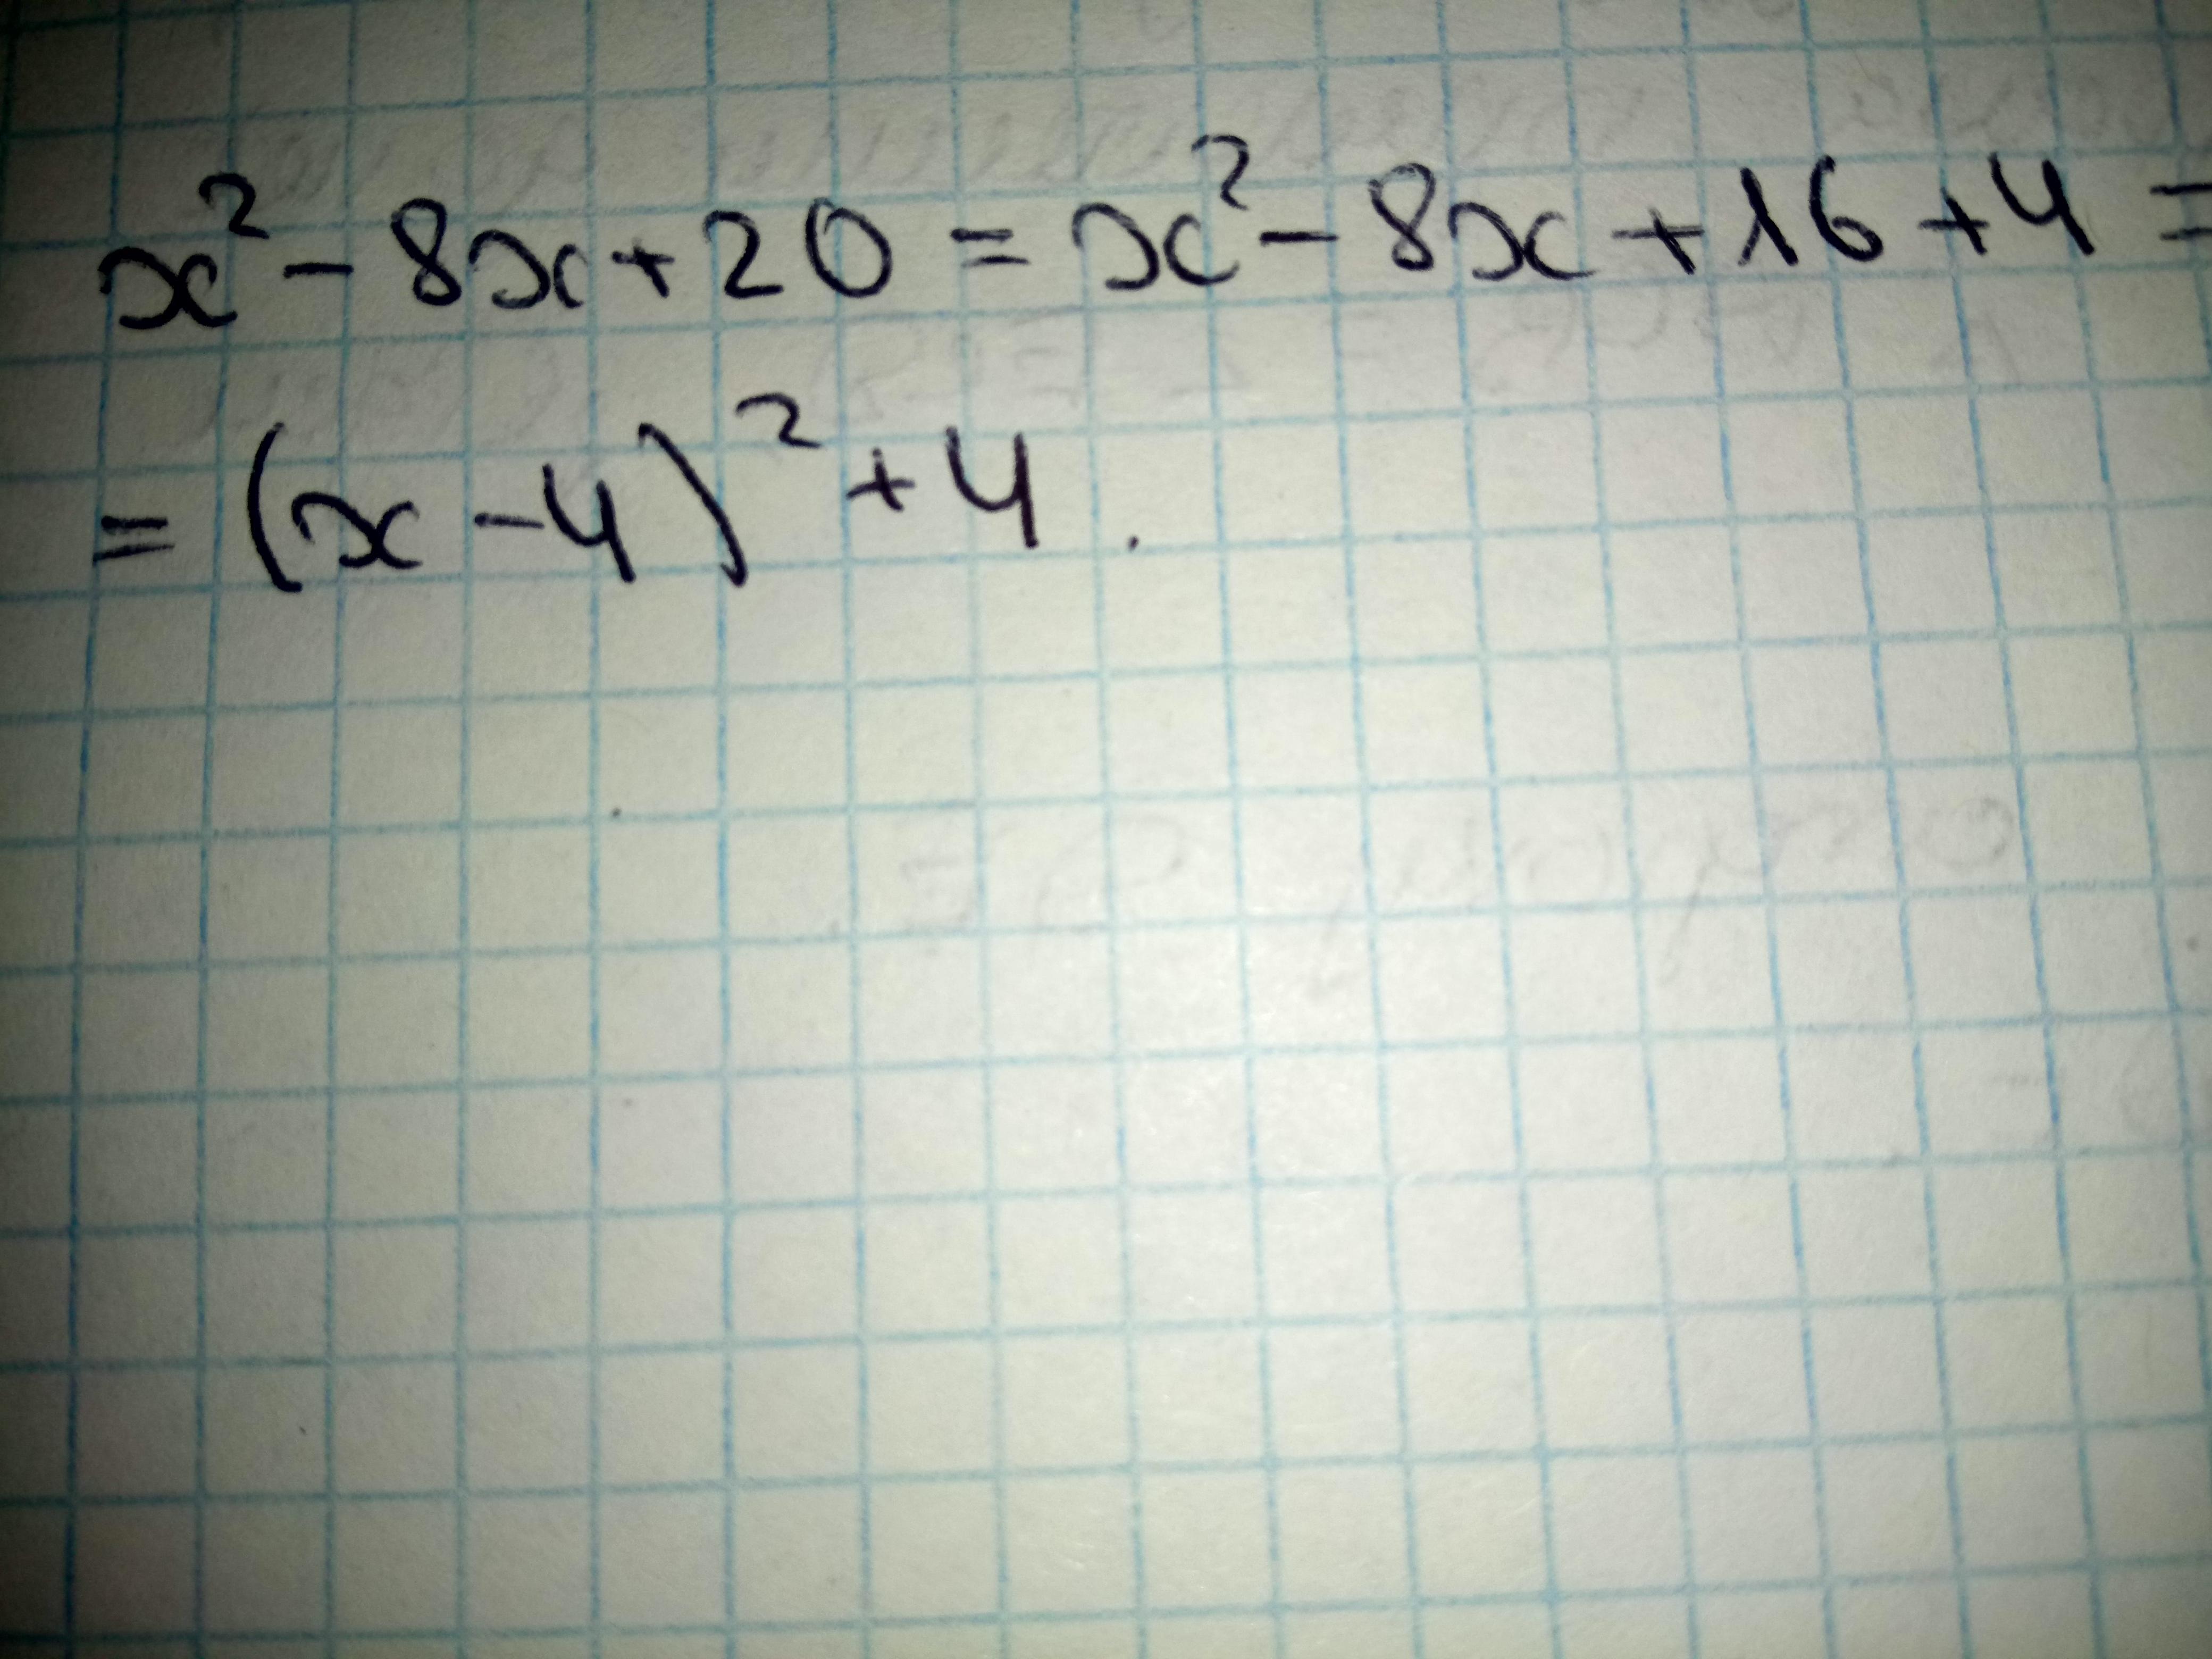 x² - 8x + 20 = x² - 8x + 16 + 4 =
= (x - 4)² + 4.